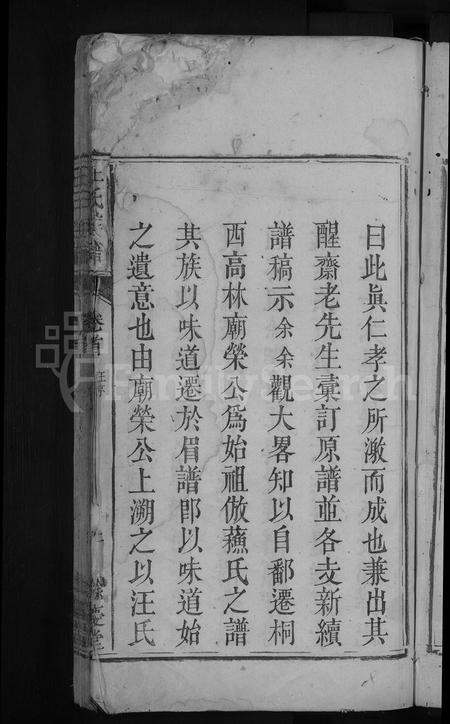 曰此眞仁孝之所激而成也兼出其
醒齋老先生彙訂原譜並各支新續
譜稿示余余觀大畧知以自鄱遷桐
西高林廟榮公爲始祖倣蘓氏之譜
其族以味道遷於眉譜郎以味道始
之遺意也由廟榮公上溯之以汪氏
氏宗譜
卷首
汪序
FamilySearch